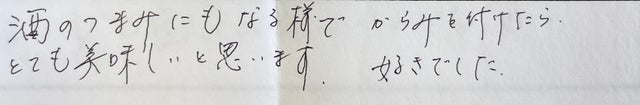 酒のつまみにもなる様で からみを付けたら.
とても美味しいと思います. 好きでした.